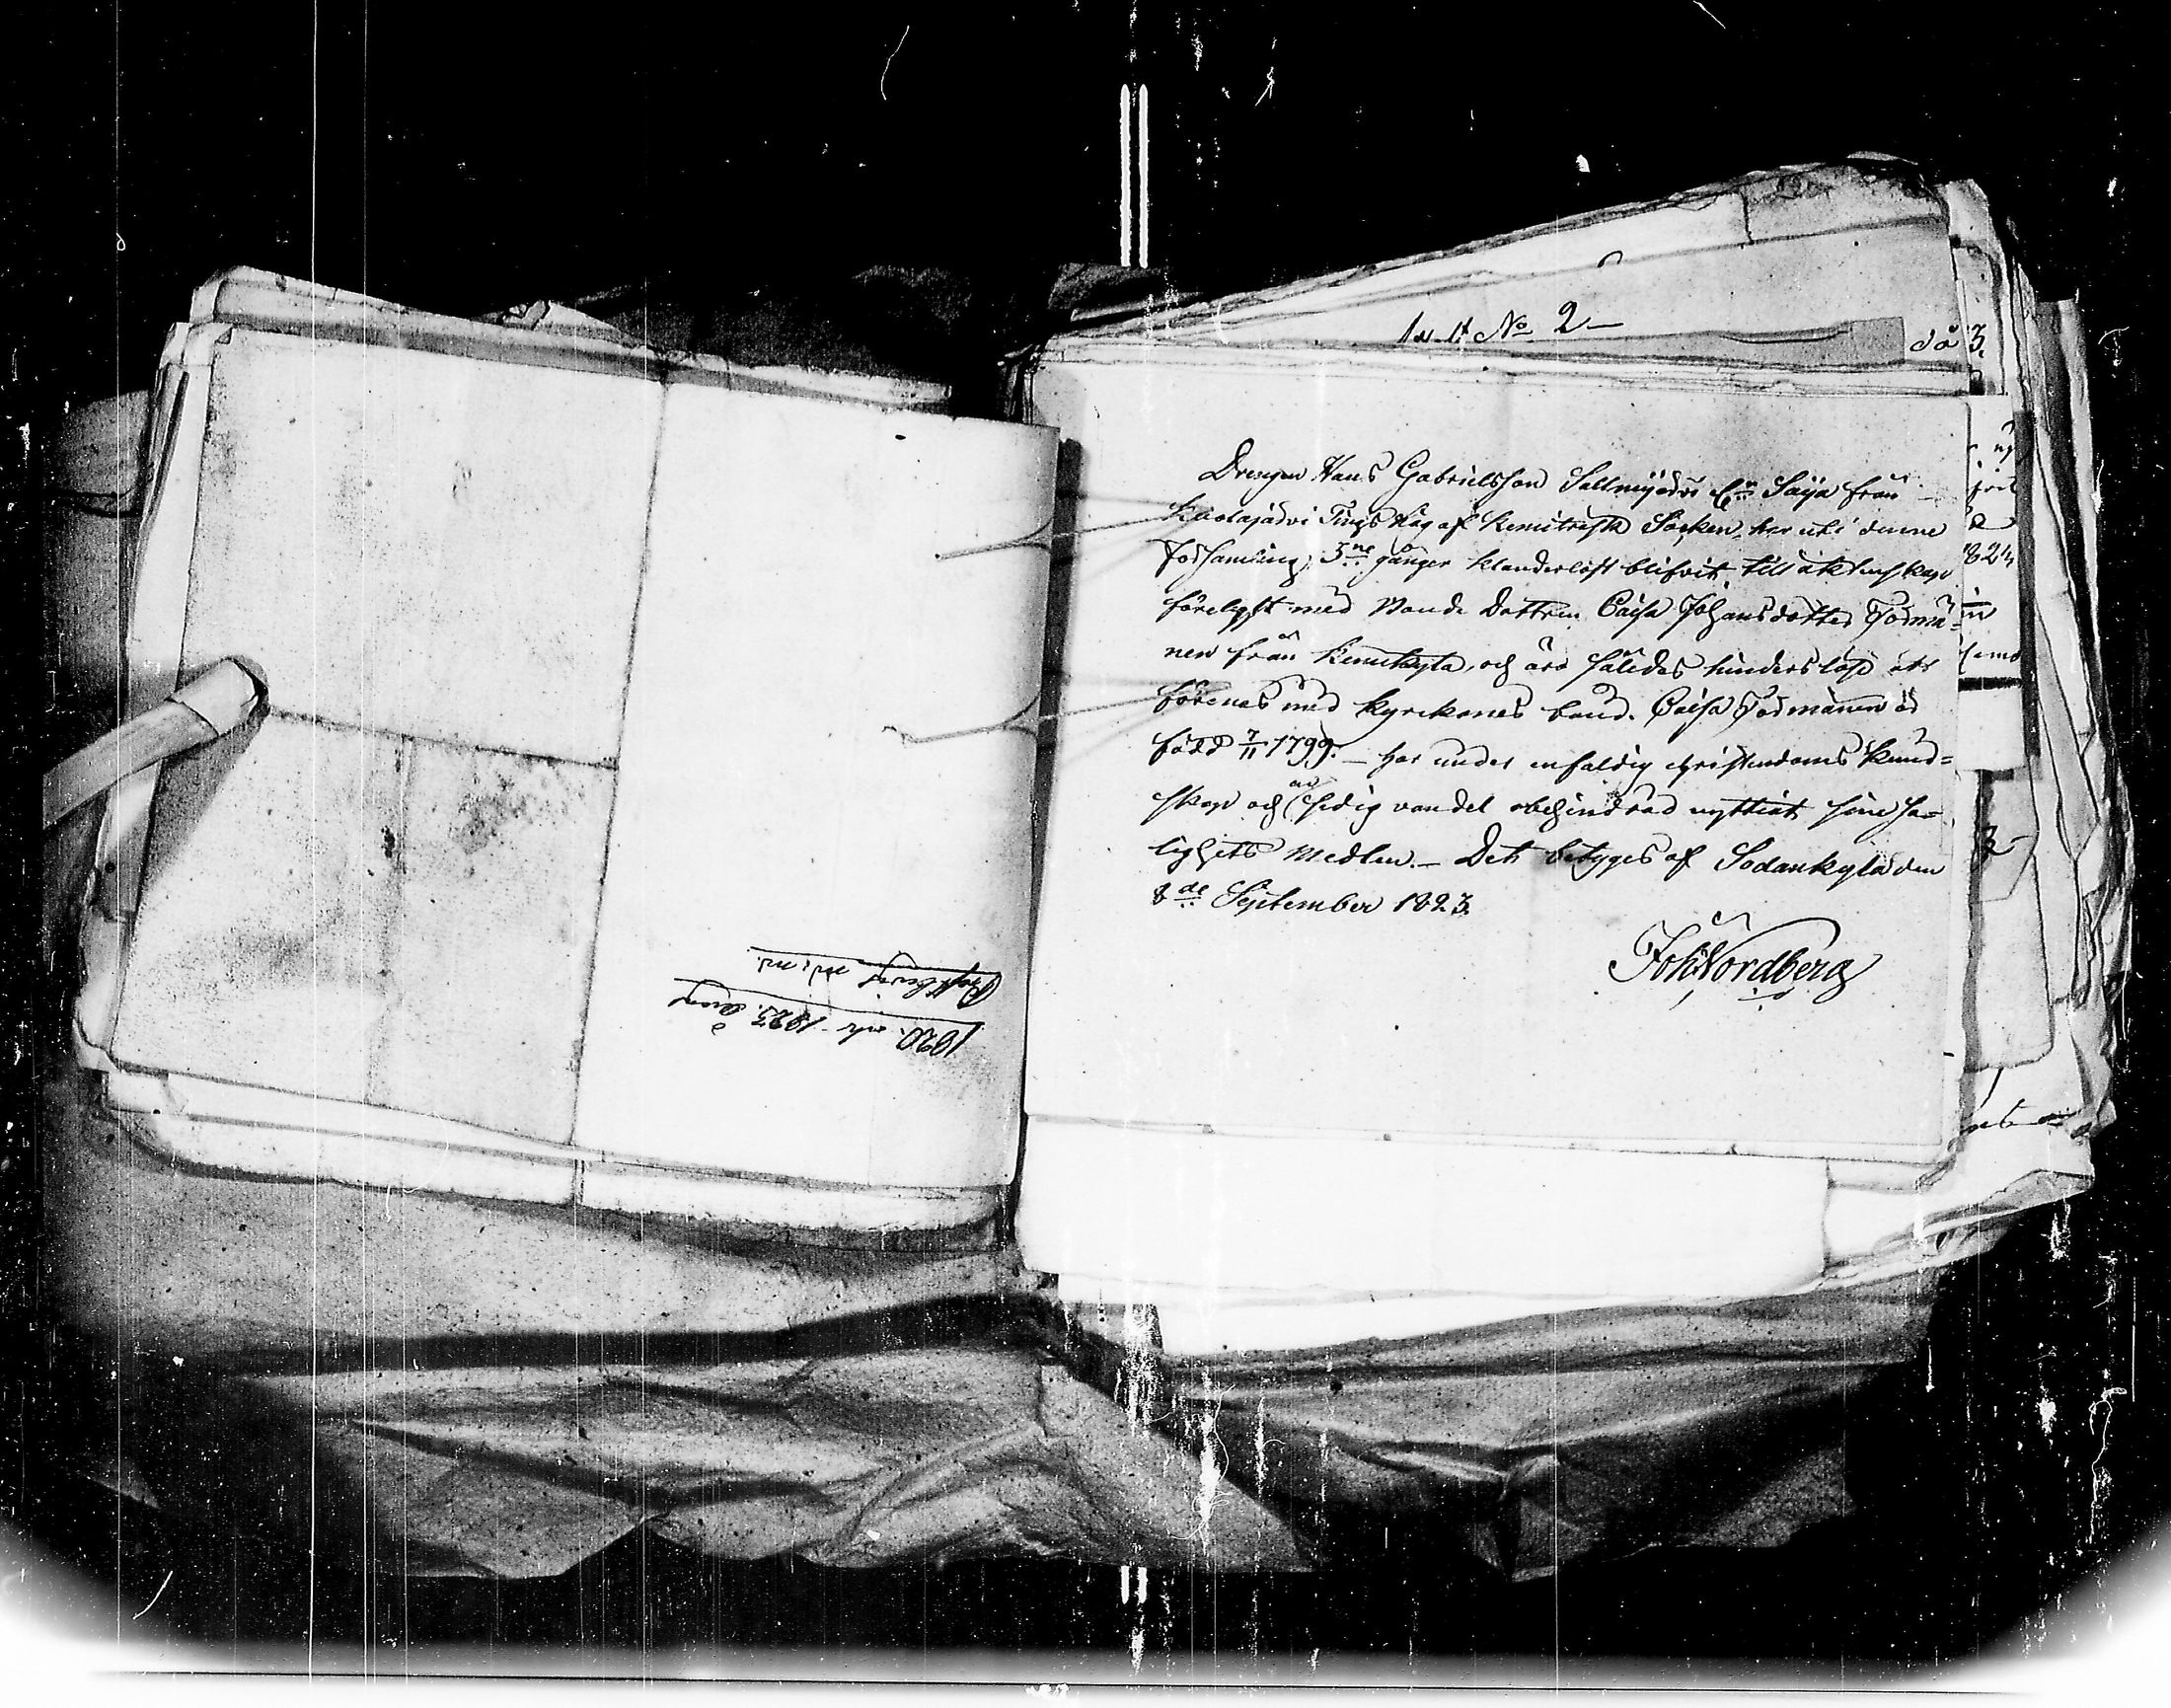 No 2
då 3.
Drengen Hans Gabrielsson Sallmijärvi Saija från
Kuolajärvi Tings Lag af Kemiträsk Socken, har uti denne
Församling 3ne gånger klanderlöst blifvit till äktenskap
förelyst med Bonde Dottren Caisa Johansdotter Tormä=
nen från Kemikylä, och äro således hinderslöse att
förenas med kyrkones band. Caisa Tormänen är
född 7/11 1799. – har under enfaldig christendoms kund=
skap och sedig vandel obehindrad nyttiat sine sa=
lighets medlen. – Det betyges af Sodankylä den
8de September 1823.
Joh: Nordberg
1820. och 1823.